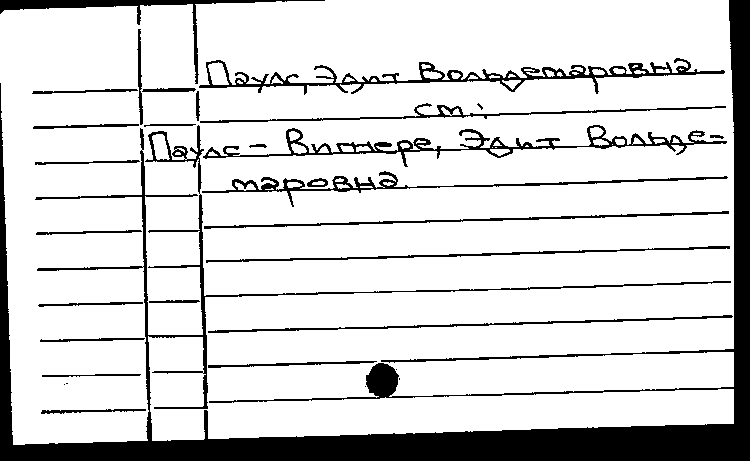 Паулс, Эдит Вольдемаровна
см.:
Паулс - Вигнере, Эдит Вольде-
маровна.